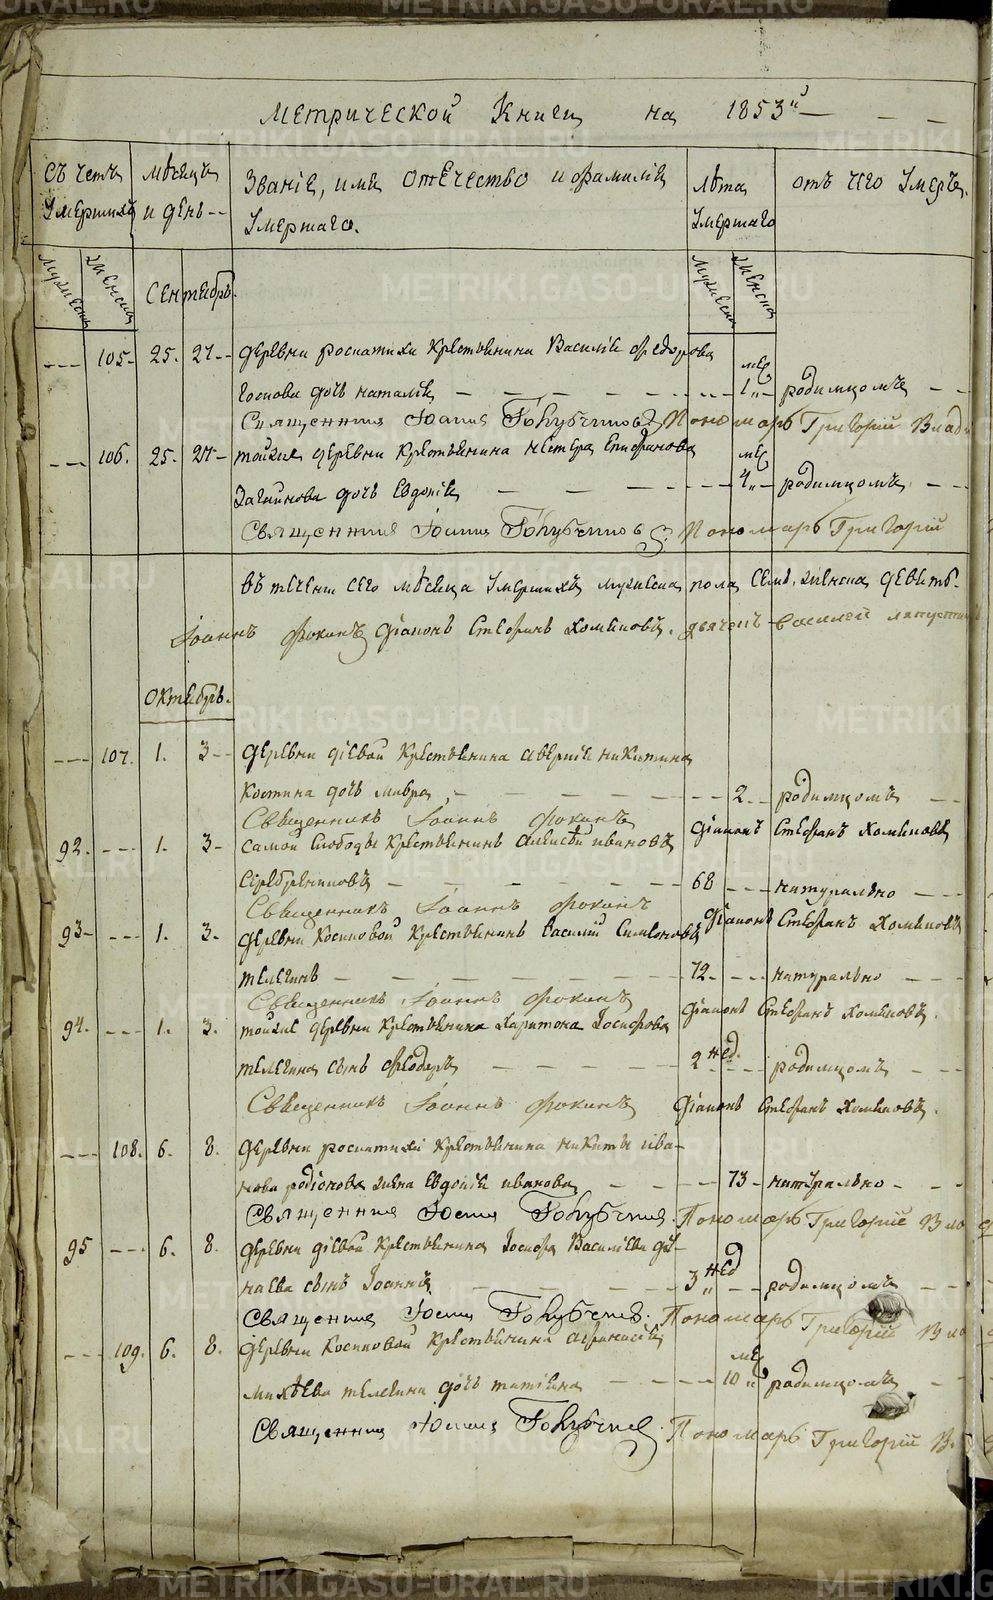 Метрической Книги на 1853й
Счетъ умершихъ
мѣсяцъ и день
Званіе, имя отечество и фамиліа умершаго.
лѣта умершаго
отъ чего умеръ.
мужеска женска
Сентябрь.
мужеска женска
105. 25. 27 деревни роспатихи Крестьянина Василіе Федорова
дочь наталіѣ мец 1 родимцомъ
Священник Іоанн Голубчиков Пономарь Григорій
106. 25. 27 тойже деревни Крестьянина нестера Епифанова
дочь Евдокіѣ мец 4 родимцомъ
Священник Іоанн Голубчиков Пономарь Григорій
въ течени сего мѣсяца умершихъ мужеска пола семь, женска девять.
Іоаннъ Фокинъ діаконъ Стефанъ Хомяковъ. дьячекъ василей
октябрь.
107. 1. 3 деревни діевой Крестьянина аверкіе никитина
Костина дочь мавра 2 родимцомъ
Священникъ Іоаннъ Фокинъ діаконъ Стефанъ Хомяковъ
92. 1. 3 самой слободы Крестьянинъ алексѣй ивановъ
Серебрениковъ 68 натурально
Священникъ Іоаннъ Фокинъ діаконъ Стефанъ Хомяковъ
93 1. 3. деревни Косиковой Крестьянинъ василій Симеоновъ
телегинъ 72 натурально
Священникъ Іоаннъ Фокинъ діаконъ Стефанъ Хомяковъ.
94. 1. 3. тойже деревни Крестьянина харитона Іосифова
телегина сынъ Феодоръ 2 нед. родимцомъ
Священникъ Іоаннъ Фокинъ діаконъ Стефанъ Хомяковъ.
108. 6. 8. деревни роспатихи Крестьянина никиты ива-
нова родіонова жена Евдокіе иванова 73 натурально
Священник Іоанн Голубчиков. Пономарь Григорій
95 6. 8. деревни діевой Крестьянина Іосифа Василіева
сынъ Іоаннъ 3 нед родимцомъ
Священник Іоанн Голубчиков. Пономарь Григорій
109. 6. 8. деревни Косиковой Крестьянина афанасіа
михѣева телегина дочь татіана мец 10 родимцомъ
Священник Іоанн Голубчиков. Пономарь Григорій
METRIKI.GASO-URAL.RU